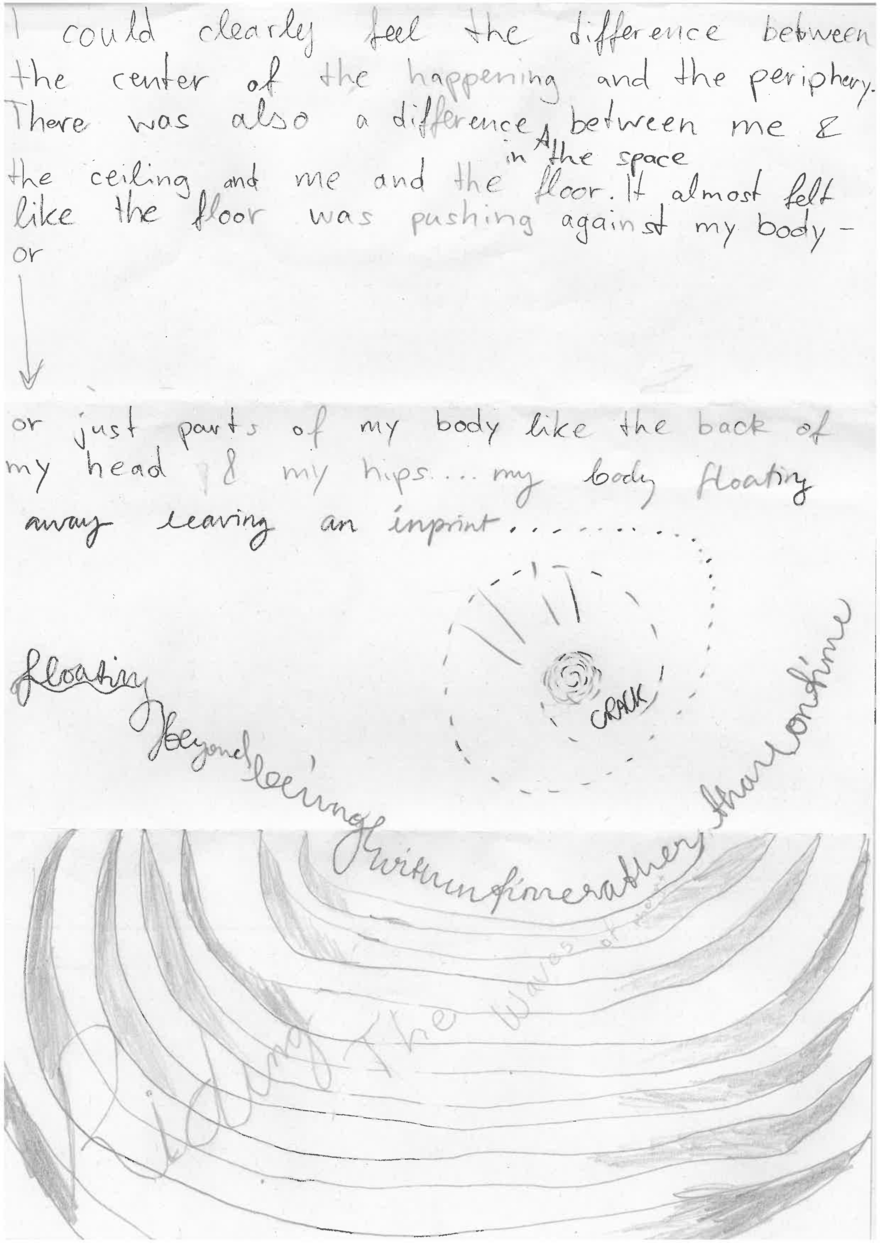 I could clearly feel the difference between
the center of the happening and the periphery.
There was also a difference between me &
in the space
the ceiling and me and the floor. It almost felt
like the floor was pushing against my body –
or
or just parts of my body like the back of
my head & my hips.... my body floating
away leaving an inprint.........
CRACK
floating beyond being within time rather than on time
Riding The waves of